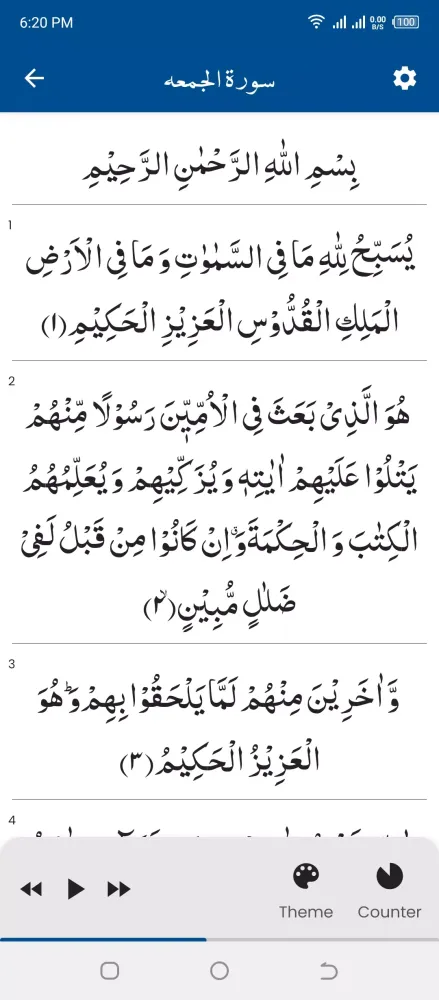 6:20 PM
0.00
B/S
100
سورة الجمعه
بِسْمِ اللّٰهِ الرَّحْمٰنِ الرَّحِيْمِ
1
يُسَبِّحُ لِلّٰهِ مَا فِى السَّمٰوٰتِ وَ مَا فِى الْاَرْضِ
الْمَلِكِ الْقُدُّوْسِ الْعَزِيْزِ الْحَكِيْمِ(۱)
2
هُوَ الَّذِىْ بَعَثَ فِى الْاُمِّیّٖنَ رَسُوْلًا مِّنْهُمْ
يَتْلُوْا عَلَيْهِمْ اٰيٰتِهٖ وَ يُزَكِّيْهِمْ وَ يُعَلِّمُهُمُ
الْكِتٰبَ وَ الْحِكْمَةَۗ وَ اِنْ كَانُوْا مِنْ قَبْلُ لَفِىْ
ضَلٰلٍ مُّبِيْنٍۙ(۲)
3
وَّ اٰخَرِيْنَ مِنْهُمْ لَمَّا يَلْحَقُوْا بِهِمْؕ وَ هُوَ
الْعَزِيْزُ الْحَكِيْمُ(۳)
4
Theme
Counter